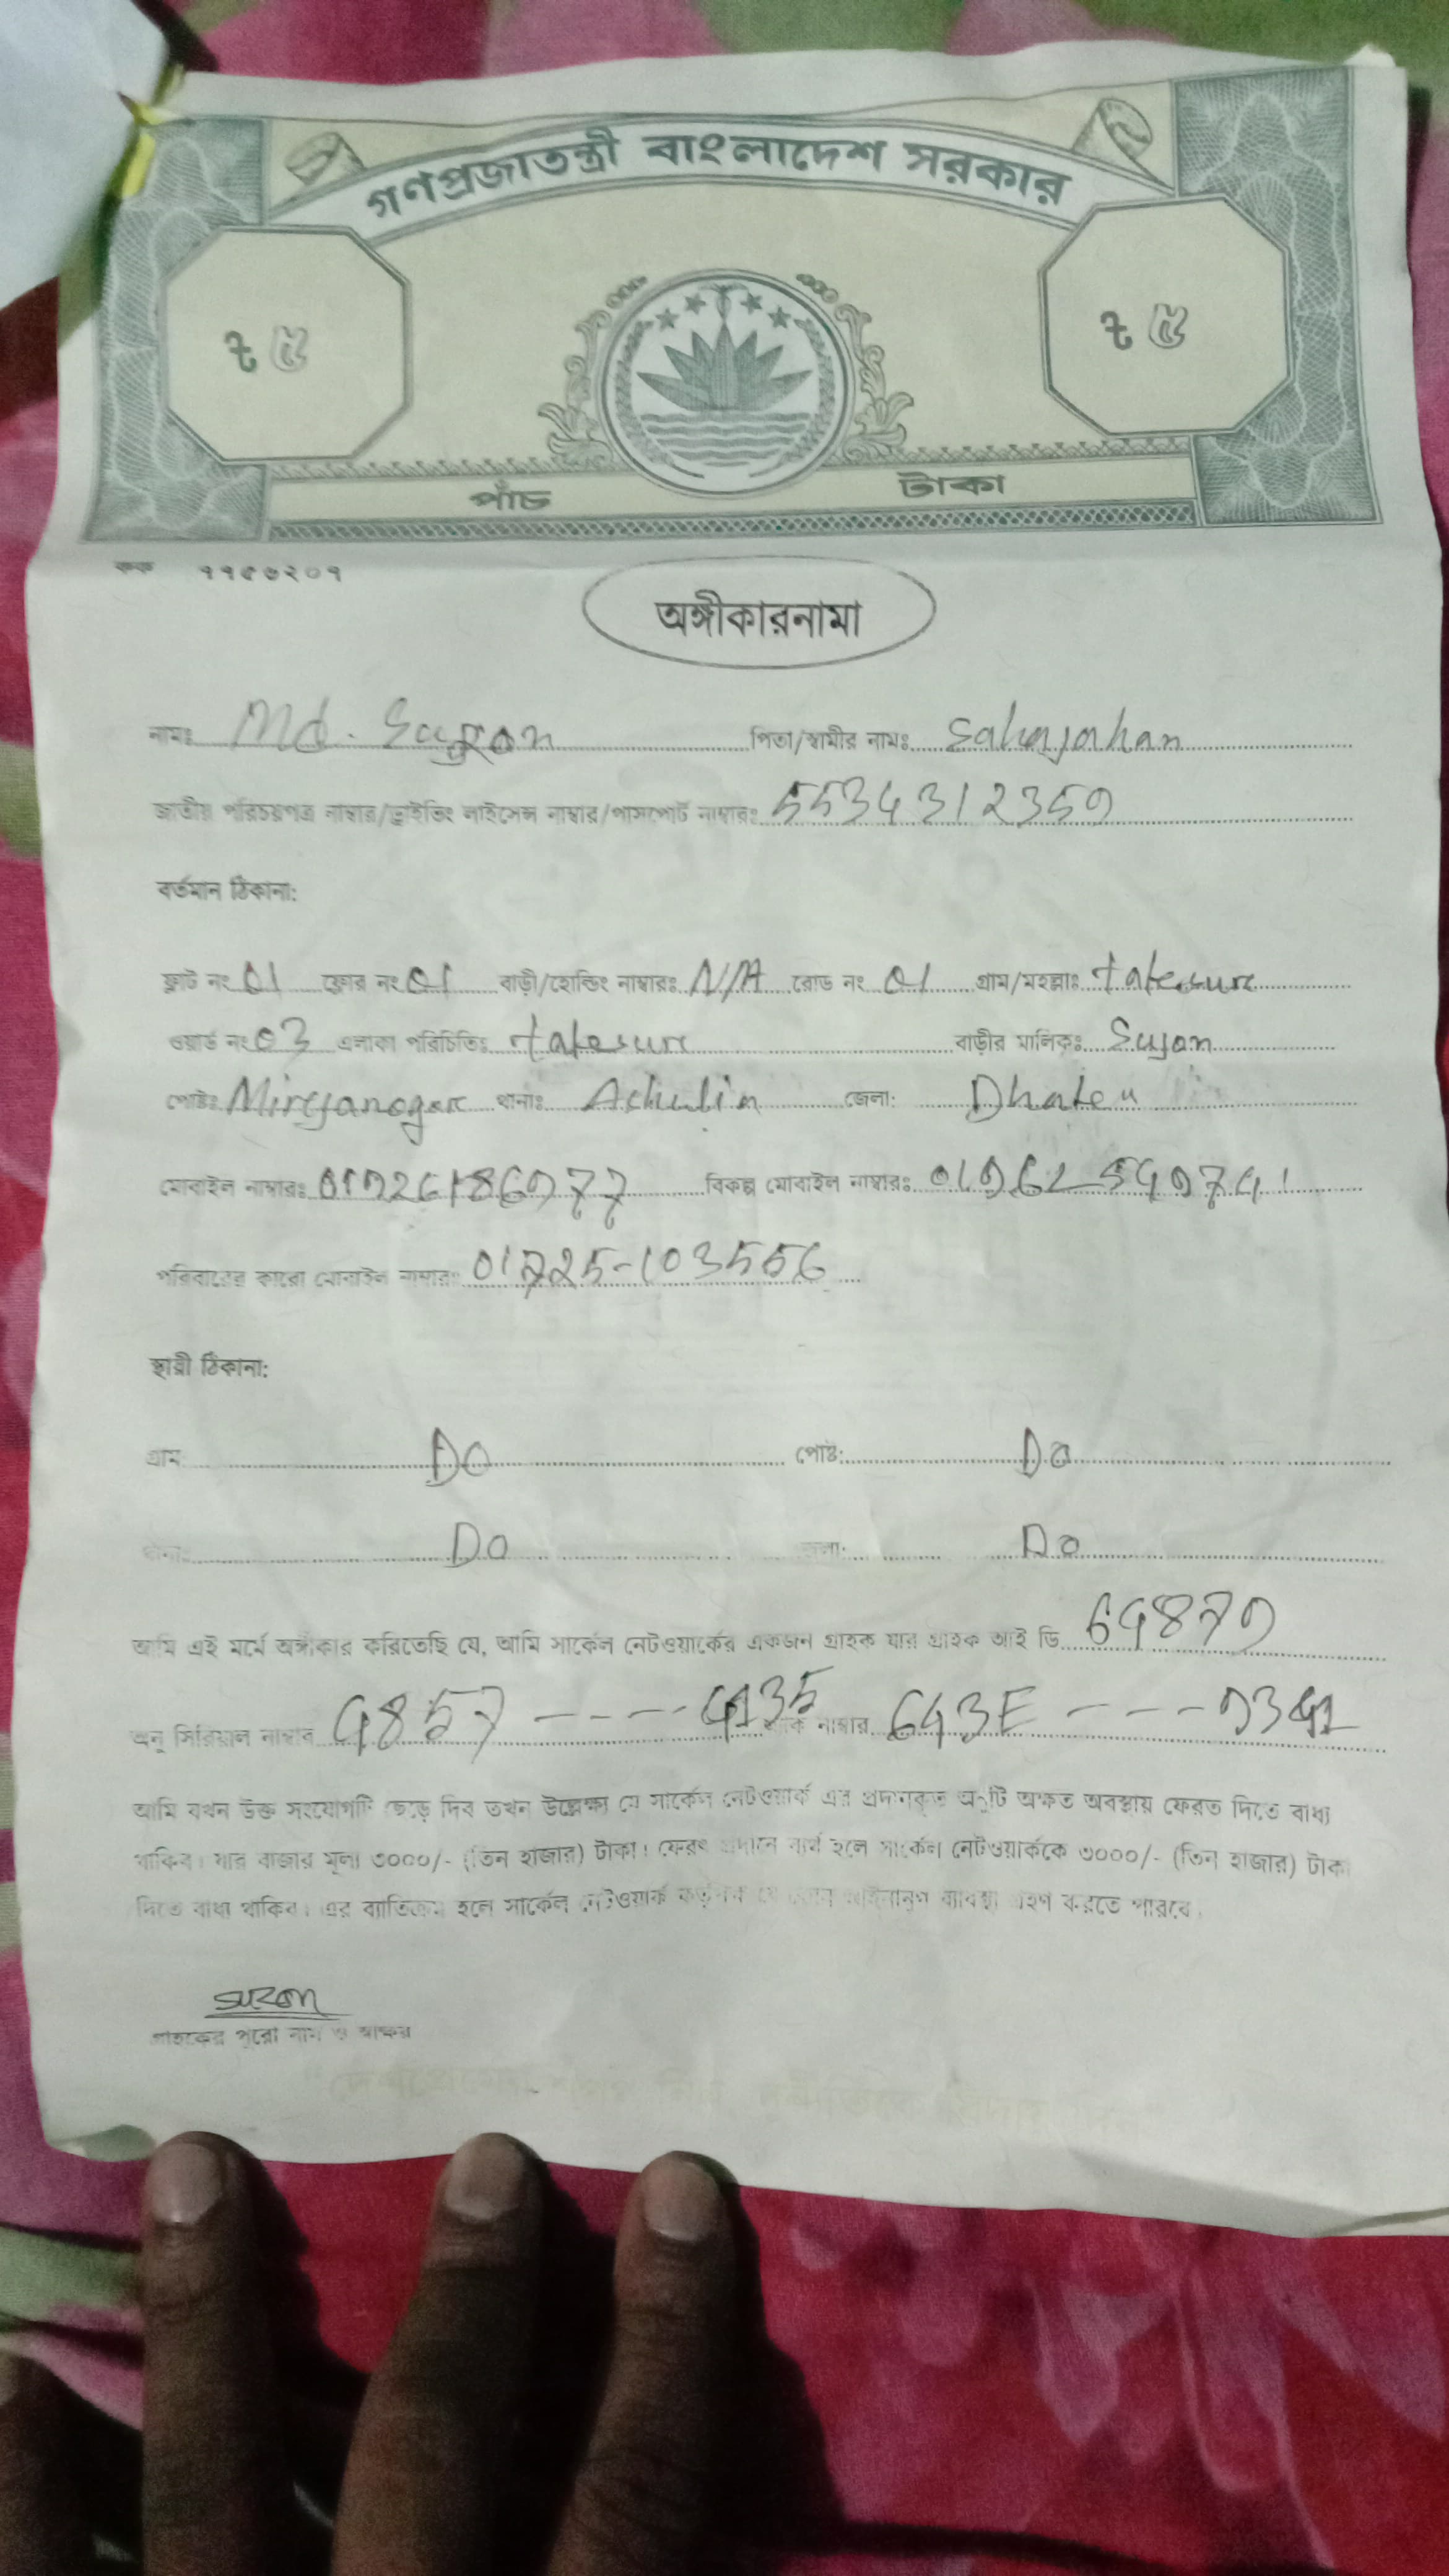 গণপ্রজাতন্ত্রী বাংলাদেশ সরকার
৳ ৫ ৳ ৫
পাঁচ টাকা
কক ৭৭৫৬২০৭
অঙ্গীকারনামা
নামঃ Md. Sujon পিতা/স্বামীর নামঃ Sahajahan
জাতীয় পরিচয়পত্র নাম্বার/ড্রাইভিং লাইসেন্স নাম্বার/পাসপোর্ট নাম্বারঃ 5534312359
বর্তমান ঠিকানা:
ফ্লাট নং 01 ফ্লোর নং 01 বাড়ী/হোল্ডিং নাম্বারঃ N/A রোড নং 01 গ্রাম/মহল্লাঃ takesure
ওয়ার্ড নং 03 এলাকা পরিচিতিঃ takesure বাড়ীর মালিকঃ Sujon
পোষ্টঃ থানাঃ জেলা:
মোবাইল নাম্বারঃ বিকল্প মোবাইল নাম্বারঃ
পরিবারের কারো মোবাইল নাম্বারঃ 01725-103556
স্থায়ী ঠিকানা:
গ্রাম: DO পোষ্ট: Do
থানা: DO জেলা: Do
আমি এই মর্মে অঙ্গীকার করিতেছি যে, আমি সার্কেল নেটওয়ার্কের একজন গ্রাহক যার গ্রাহক আই ডি 64879
অনু সিরিয়াল নাম্বার 4857 ---- 4135 ম্যাক নাম্বার 643E ----9341
আমি যখন উক্ত সংযোগটি ছেড়ে দিব তখন উল্লেক্ষ্য যে সার্কেল নেটওয়ার্ক এর প্রদানকৃত অনুটি অক্ষত অবস্থায় ফেরত দিতে বাধ্য
থাকিব। যার বাজার মূল্য ৩০০০/- (তিন হাজার) টাকা। ফেরৎ প্রদানে ব্যর্থ হলে সার্কেল নেটওয়ার্ককে ৩০০০/- (তিন হাজার) টাকা
দিতে বাধ্য থাকিব। এর ব্যতিক্রম হলে সার্কেল নেটওয়ার্ক কর্তৃপক্ষ যে কোন আইনানুগ ব্যাবস্থা গ্রহণ করতে পারবে।
সুজন
গ্রাহকের পুরো নাম ও স্বাক্ষর